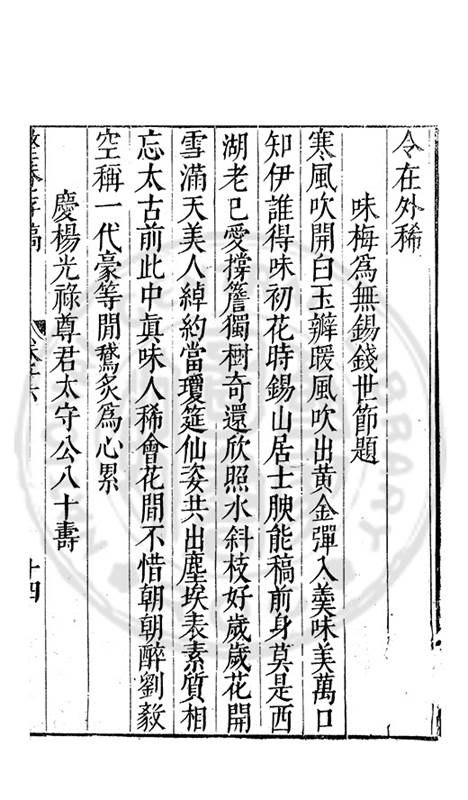 令在外稀
味梅爲無錫錢世節題
寒風吹開白玉瓣暖風吹出黄金彈入羮味美萬口
知伊誰得味初花時錫山居士腴能稿前身莫是西
湖老已愛撐簷獨樹奇還欣照水斜枝好歲歲花開
雪滿天美人綽約當瓊筵仙姿共出塵埃表素質相
忘太古前此中眞味人稀會花間不惜朝朝醉劉毅
空稱一代豪等閒鵞炙爲心累
慶楊光祿尊君太守公八十壽
存稿
十四